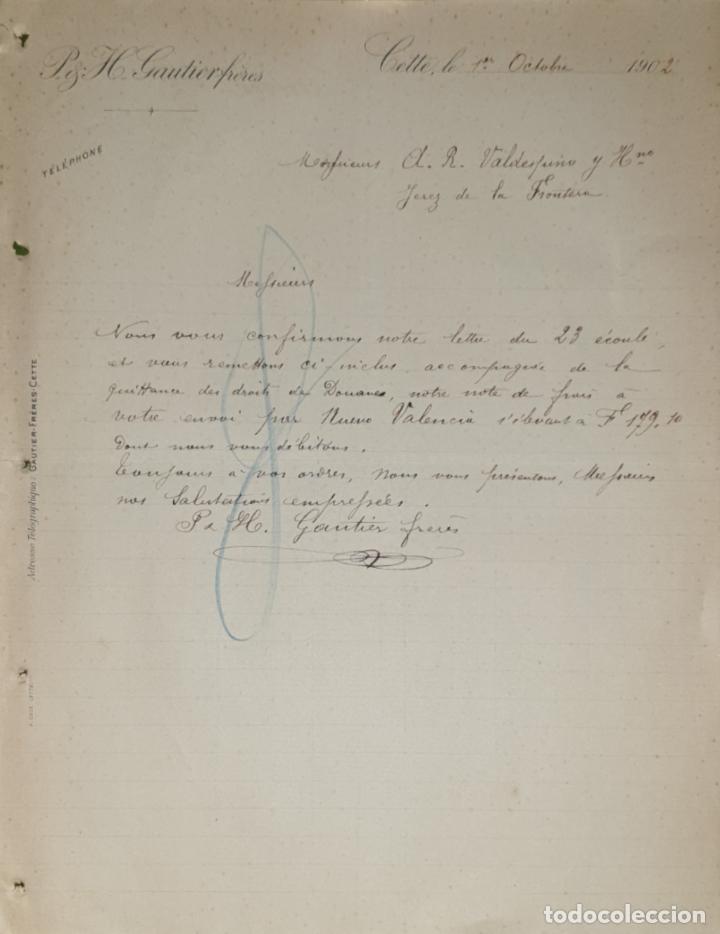 P. & H. Gautier frères
Cette, le 1er Octobre 1902
TÉLÉPHONE
Messieurs A. R. Valdespino y Hno
Jerez de la Frontera
Messieurs
Nous vous confirmons notre lettre du 23 écoulé
et vous remettons ci-inclus, accompagnée de la
quittance des droits de Douanes, notre note de frais à
votre envoi par Nuevo Valencia s'élevant à F 179.10
dont nous vous débitons.
Toujours à vos ordres, nous vous présentons, Messieurs
nos salutations empressées.
P & H. Gautier frères
Adresse Télégraphique: GAUTIER-FRÈRES-CETTE
todocoleccion